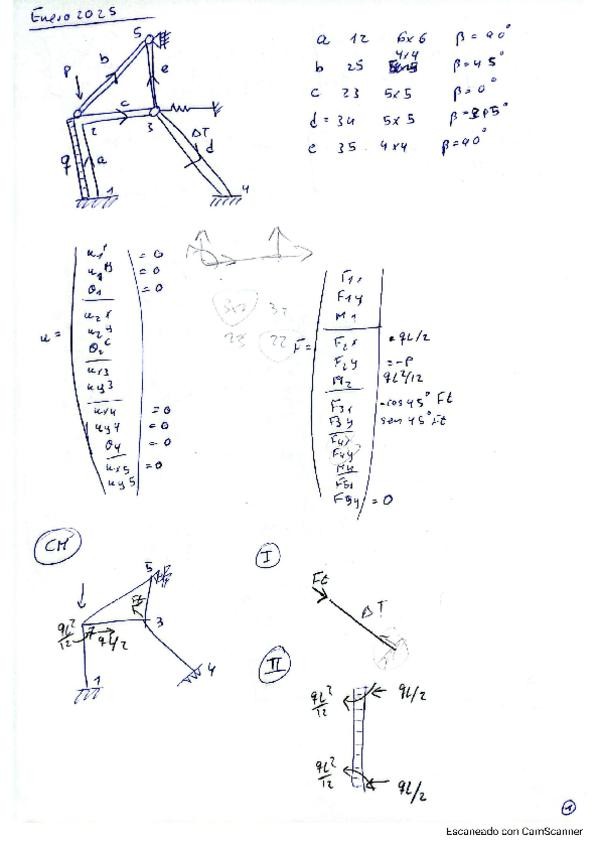 Enero 2025
a 12 6x6 β=90°
b 25 4x4 β=45°
c 23 5x5 β=0°
d = 34 5x5 β=315°
e 35 4x4 β=90°
5
P
b
e
c
2
3
ΔT
q
a
d
1
4
u =
= 0
= 0
θ1 = 0
u2x
u2y
θ2c
ux3
uy3
ux4 = 0
uy4 = 0
θ4 = 0
ux5 = 0
uy5
F =
F1x
F1y
M1
F2x = qL/2
F2y = -P
M2 qL²/12
F3x -cos45° Ft
F3y sen 45° Ft
F4x
F4y
M4
F5x
F5y = 0
CM
5
Ft
3
qL²/12
qL/2
1
4
I
Ft
ΔT
II
qL²/12
qL/2
qL²/12
qL/2
1
Escaneado con CamScanner